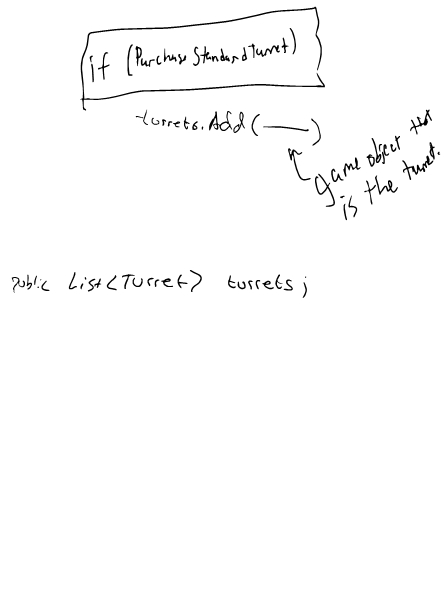 if (PurchaseStandardTurret)
turrets.Add( ___ )
game object that
is the turret.
public List<Turret> turrets;